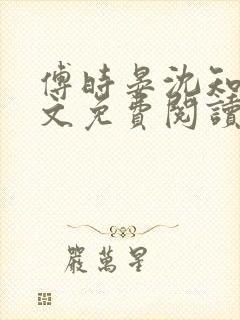 傅時晏沈知
文免費閱讀
嚴萬星